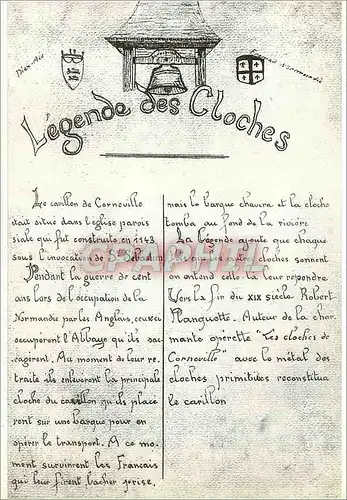 Dieu Aïe
Légende des Cloches
Le carillon de Corneville
était situé dans l'église parois
siale qui fut construite en 1143
sous l'invocation de St Sébastien
Pendant la guerre de cent
ans lors de l'occupation de la
Normandie par les Anglais, ceux ci
occupèrent l'Abbaye qu'ils sac-
cagèrent. Au moment de leur re-
traite ils enlevèrent la principale
cloche du carillon qu'ils placè
rent sur une barque pour en
opérer le transport. A ce mo-
ment survinrent les Français
qui leur firent lacher prise,
mais la barque chavira et la cloche
tomba au fond de la rivière
La Légende ajoute que chaque
fois que les autres cloches sonnent
on entend celle là leur répondre
Vers la fin du XIX siècle Robert
Planquette. Auteur de la char
mante opérette "Les cloches de
Corneville" avec le métal des
cloches primitives reconstitua
le carillon